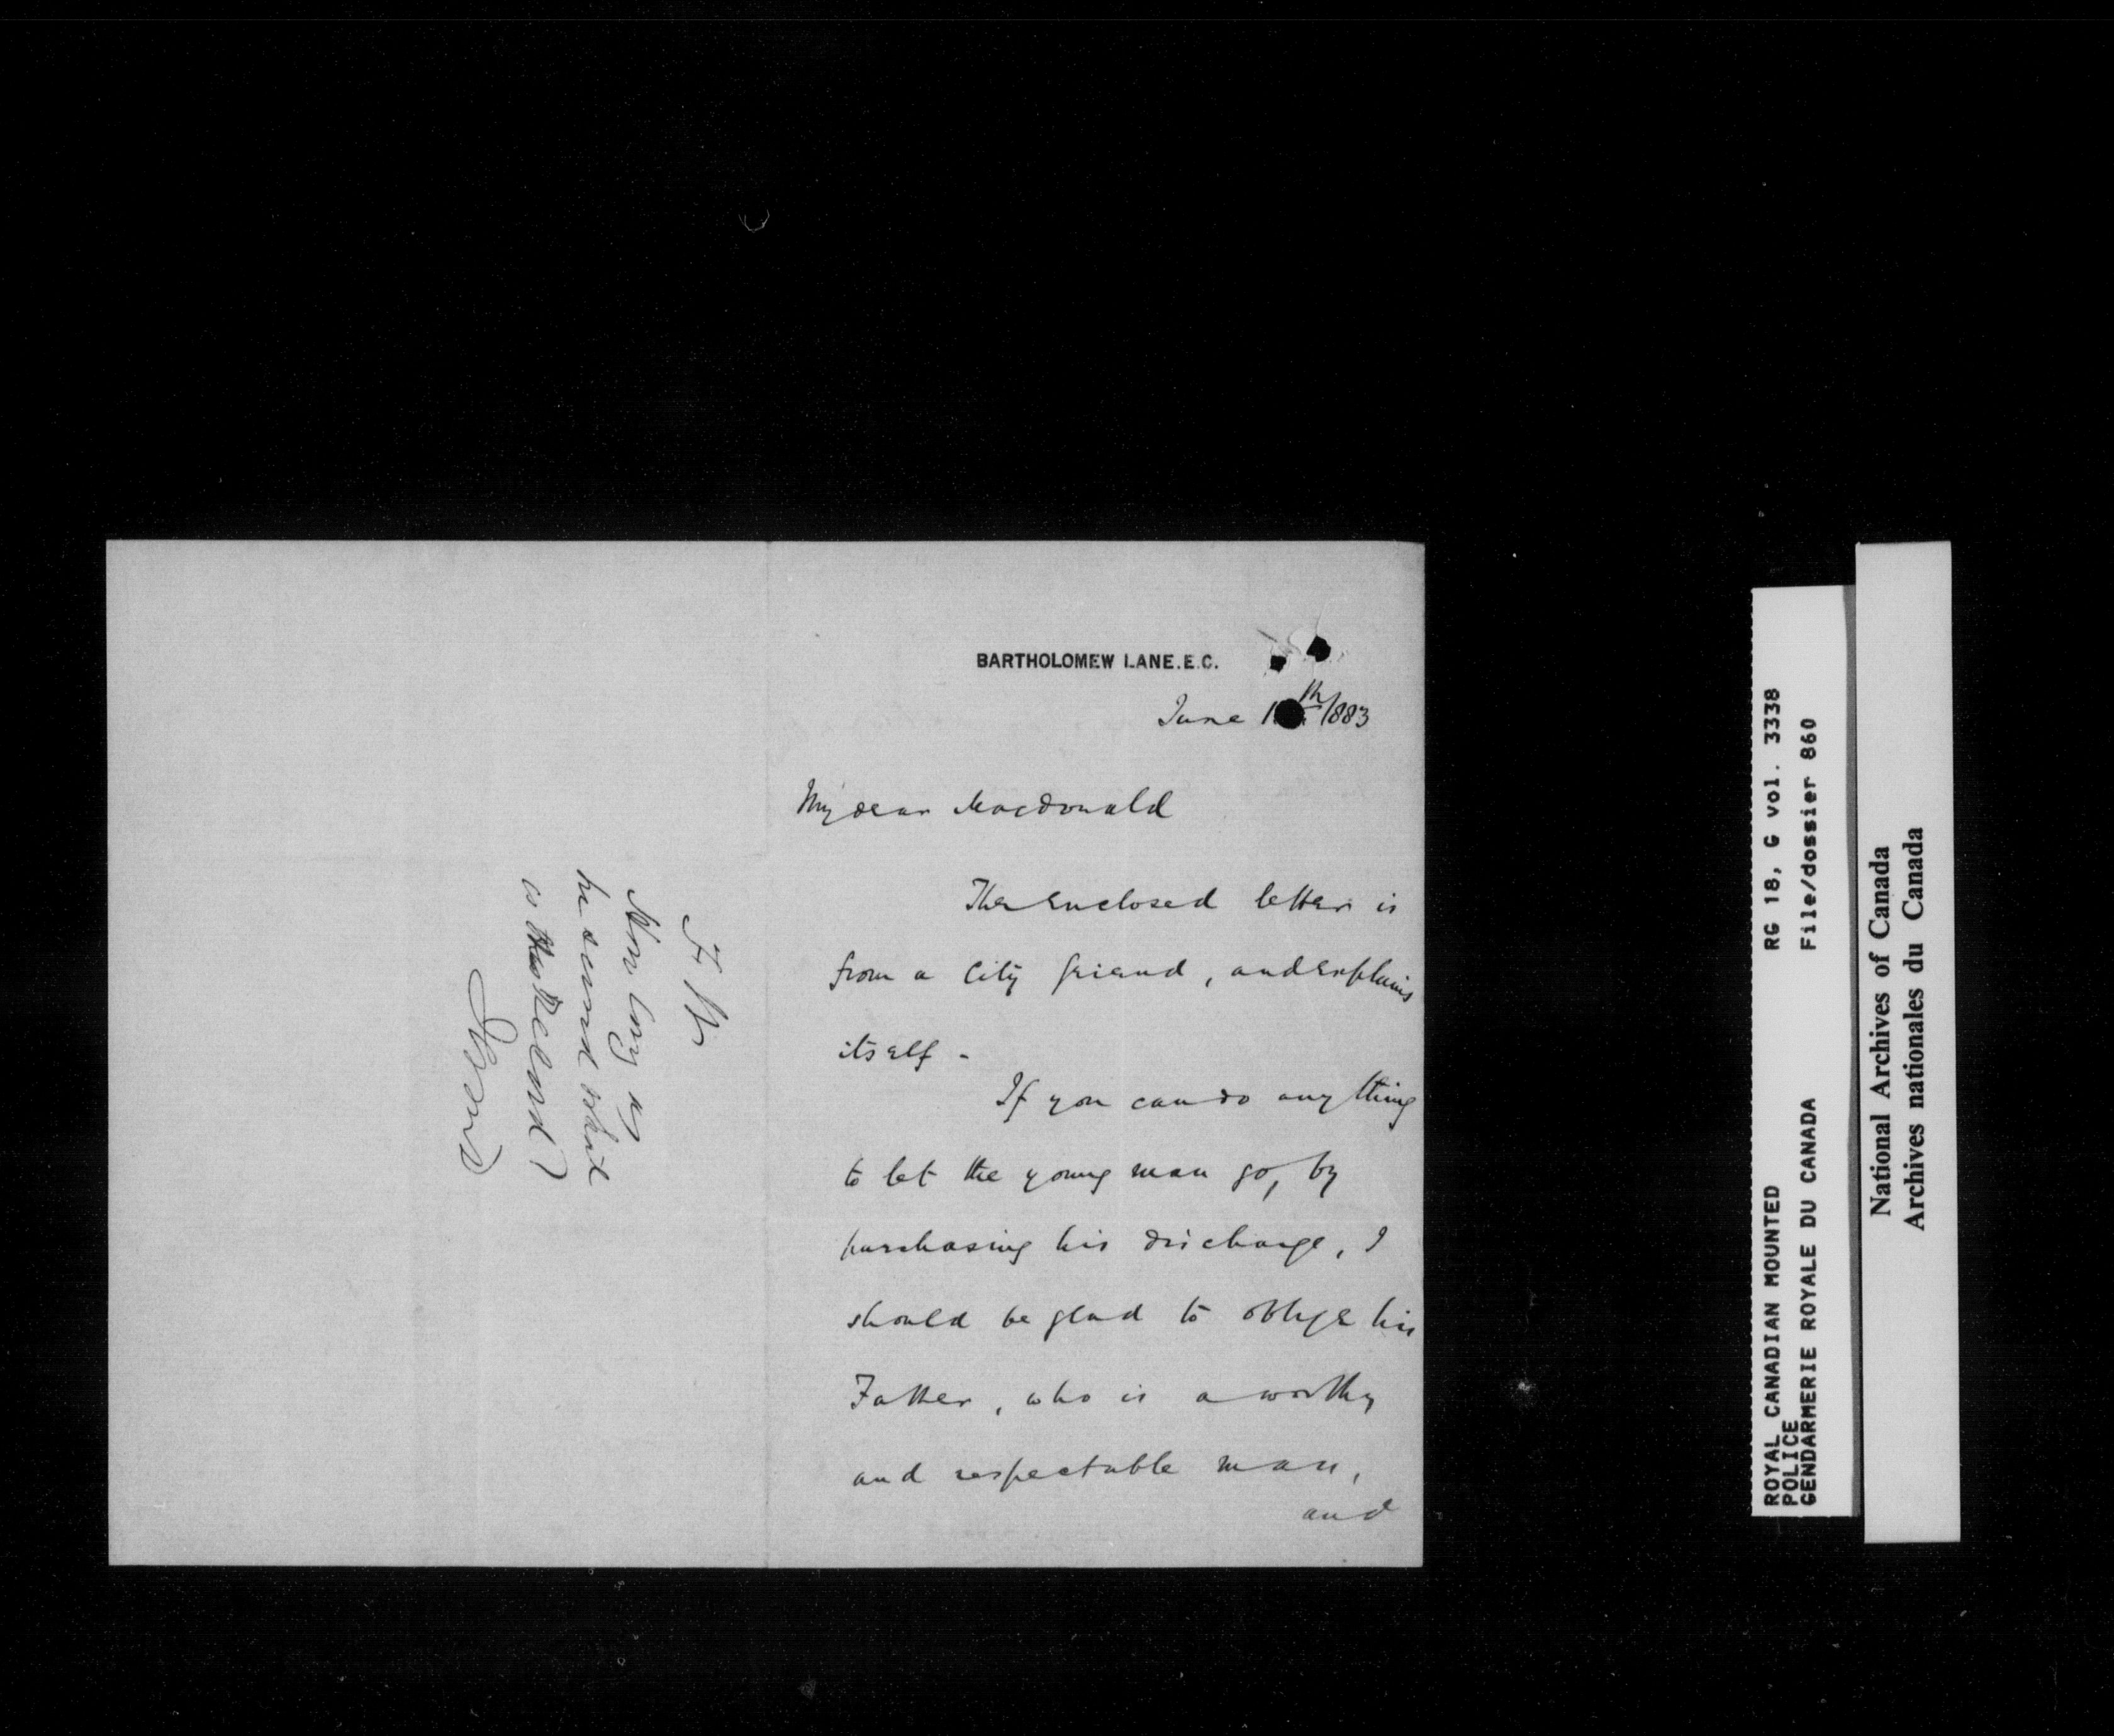 BARTHOLOMEW LANE.E.C.
June 1 th/1883
My dear Macdonald
The enclosed letter is
from a City friend, and explains
itself -
If you can do anything
to let the young man go, by
purchasing his discharge, I
should be glad to oblige his
Father, who is a worthy
and respectable man,
and
F W
How long
he served what
is his Record?
ROYAL CANADIAN MOUNTED
POLICE
GENDARMERIE ROYALE DU CANADA
RG 18, G vol. 3338
File/dossier 860
National Archives of Canada
Archives nationales du Canada